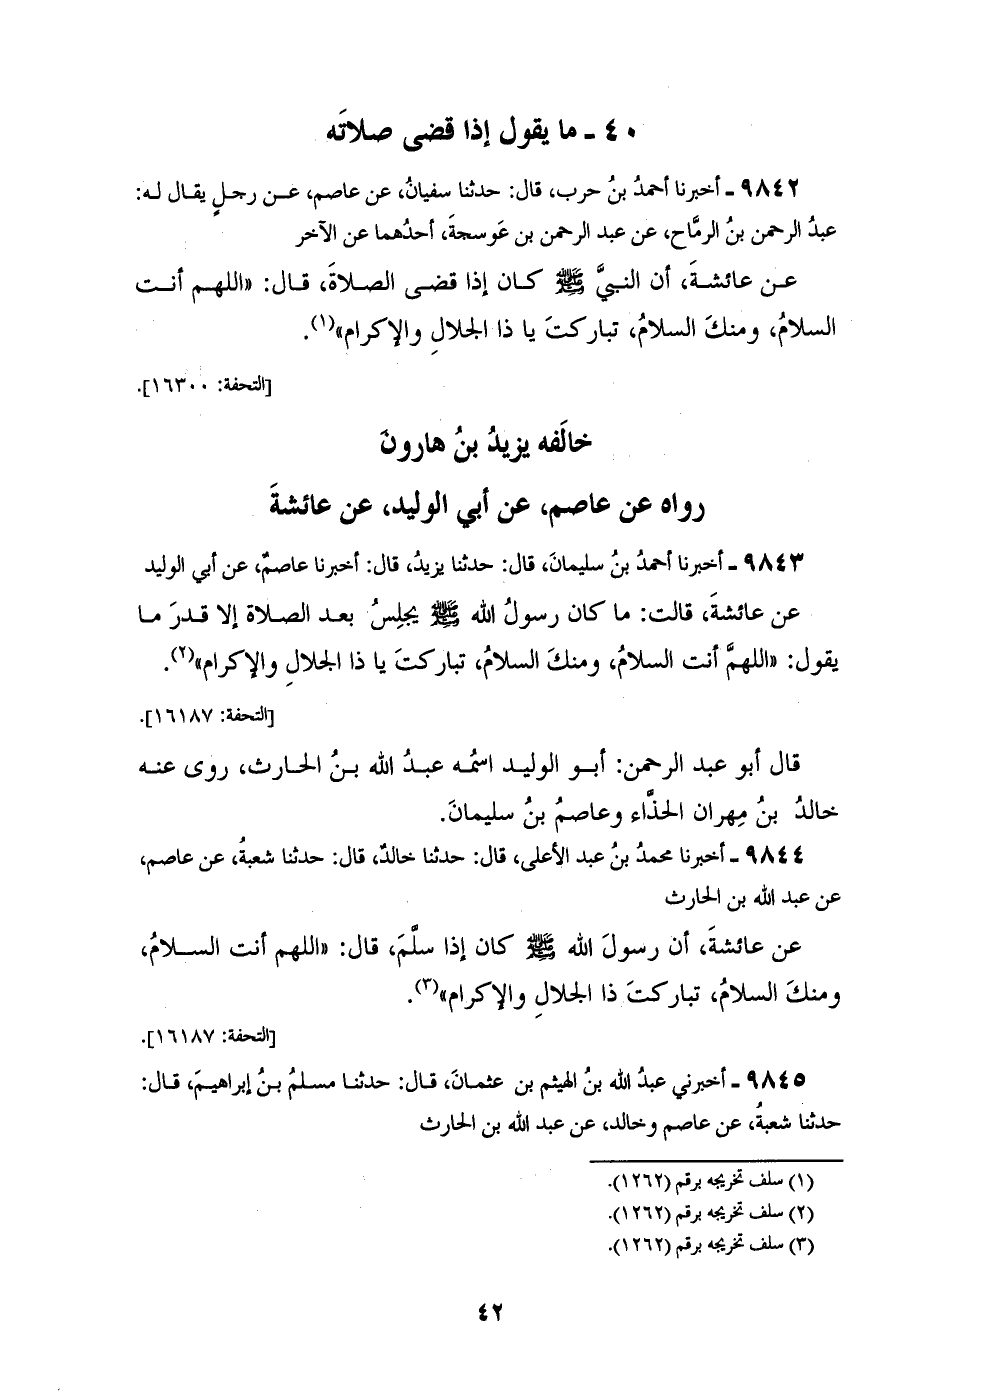 ٤٠ ـ ما يقول إذا قضى صلاتَه
٩٨٤٢ ـ أخبرنا أحمدُ بنُ حرب، قال: حدثنا سفيانُ، عن عاصم، عـن رجـلٍ يقـال لـه:
عبدُ الرحمن بنُ الرمَّاح، عن عبد الرحمن بن عَوسجةَ، أحدُهما عن الآخر
عـن عائشـةَ، أن النـبيَّ ﷺ كـان إذا قضـى الصـلاةَ، قـال: «اللهـم أنـت
السلامُ، ومنكَ السلامُ، تباركتَ يا ذا الجلالِ والإكرام»(١).
[التحفة: ١٦٣٠٠].
خالَفه يزيدُ بنُ هارونَ
رواه عن عاصم، عن أبي الوليد، عن عائشةَ
٩٨٤٣ ـ أخبرنا أحمدُ بنُ سليمانَ، قال: حدثنا يزيدُ، قال: أخبرنا عاصمٌ، عن أبي الوليد
عن عائشةَ، قالت: ما كان رسولُ الله ﷺ يجلِسُ بعـد الصـلاة إلا قـدرَ مـا
يقول: «اللهمَّ أنت السلامُ، ومنكَ السلامُ، تباركتَ يا ذا الجلالِ والإكرام»(٢).
[التحفة: ١٦١٨٧].
قال أبو عبد الرحمن: أبـو الوليـد اسمُـه عبـدُ الله بـنُ الحـارث، روى عنـه
خالدُ بنُ مِهران الحذَّاء وعاصمُ بنُ سليمانَ.
٩٨٤٤ ـ أخبرنا محمدُ بنُ عبد الأعلى، قال: حدثنا خالدٌ، قال: حدثنا شعبةُ، عن عاصم،
عن عبد الله بن الحارث
عن عائشةَ، أن رسولَ الله ﷺ كان إذا سلَّمَ، قال: «اللهم أنت السـلامُ،
ومنكَ السلامُ، تباركتَ ذا الجلالِ والإكرام»(٣).
[التحفة: ١٦١٨٧].
٩٨٤٥ ـ أخبرني عبدُ الله بنُ الهيثم بن عثمـانَ، قـال: حدثنـا مسلمُ بـنُ إبراهيـمَ، قـال:
حدثنا شعبةُ، عن عاصم وخالد، عن عبد الله بن الحارث
(١) سلف تخريجه برقم (١٢٦٢).
(٢) سلف تخريجه برقم (١٢٦٢).
(٣) سلف تخريجه برقم (١٢٦٢).
٤٢